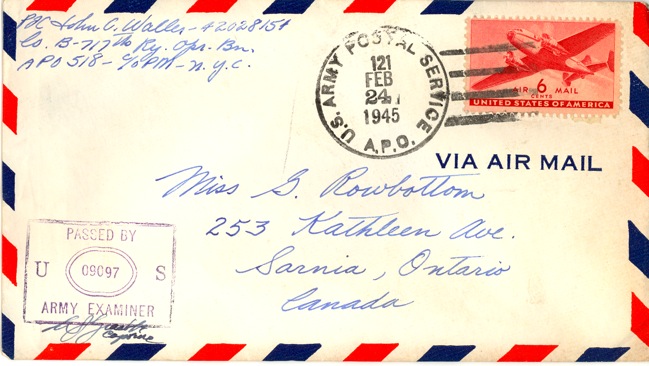 Pvt John C. Waller - A2028154
Co. B - 717th Ry. Opr. Bn.
APO 518 - c/o PM - N.Y.C.
U.S. ARMY POSTAL SERVICE
121
FEB
24
1945
A.P.O.
AIR 6 MAIL
CENTS
UNITED STATES OF AMERICA
VIA AIR MAIL
Miss G. Rowbottom
253 Kathleen Ave.
Sarnia, Ontario
Canada
PASSED BY
U 09097 S
ARMY EXAMINER